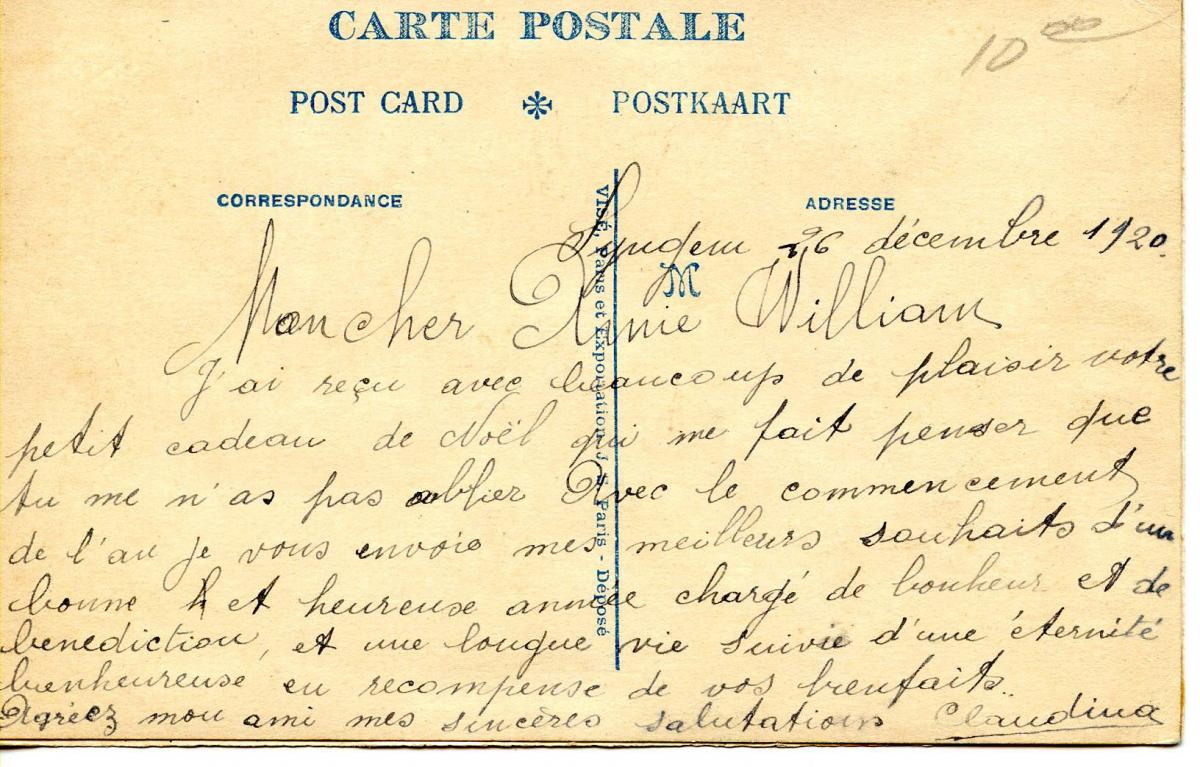 CARTE POSTALE
10 00
POST CARD * POSTKAART
CORRESPONDANCE
ADRESSE
VISÉ, Paris et Exportation. J. S. Paris - Déposé
26 décembre 1920.
M
Mon cher William
J'ai reçu avec beaucoup de plaisir votre
petit cadeau de Noël qui me fait penser que
tu me n'as pas oblier Avec le commencement
de l'an je vous envoie mes meilleurs souhaits d'un
bonne h et heureuse année chargé de bonheur et de
benediction, et une longue vie suivie d'une éternité
bienheureuse en recompense de vos bienfaits..
Agréez mon ami mes sincères salutations Claudina